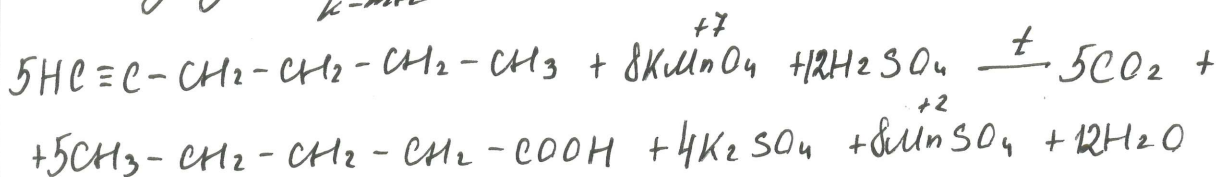 к-та
+7
5HC≡C-CH₂-CH₂-CH₂-CH₃ + 8KMnO₄ +12H₂SO₄ —t— 5CO₂ +
+2
+5CH₃-CH₂-CH₂-CH₂-COOH +4K₂SO₄ +8MnSO₄ +12H₂O